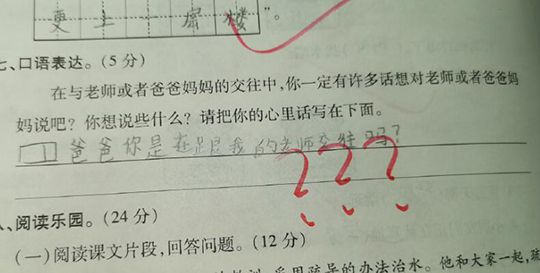 更上层楼”。
七、口语表达。(5分)
在与老师或者爸爸妈妈的交往中,你一定有许多话想对老师或者爸爸妈
妈说吧?你想说些什么?请把你的心里话写在下面。
爸爸你是在跟我的老师交往吗?
???
、阅读乐园。(24分)
(一)阅读课文片段,回答问题。(12分)
采用疏导的办法治水。他和大家一起,疏